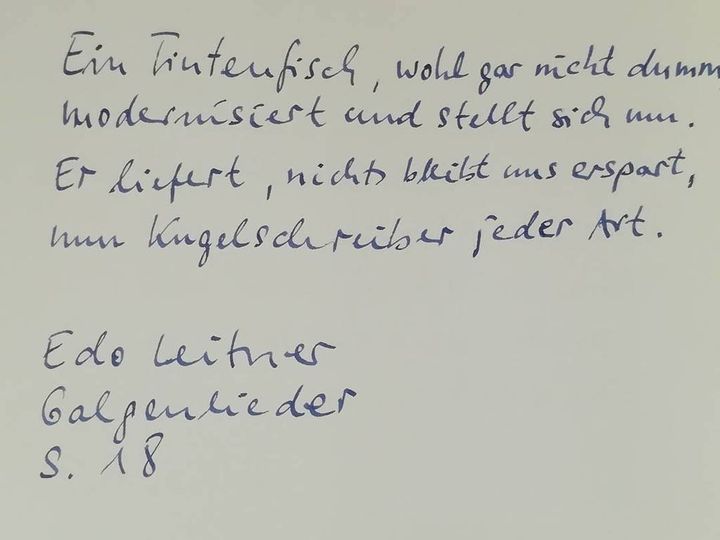 Ein Tintenfisch, wohl gar nicht dumm
modernisiert und stellt sich um.
Er liefert, nichts bleibt uns erspart,
nun Kugelschreiber jeder Art.
Edo Leitner
Galgenlieder
S. 18